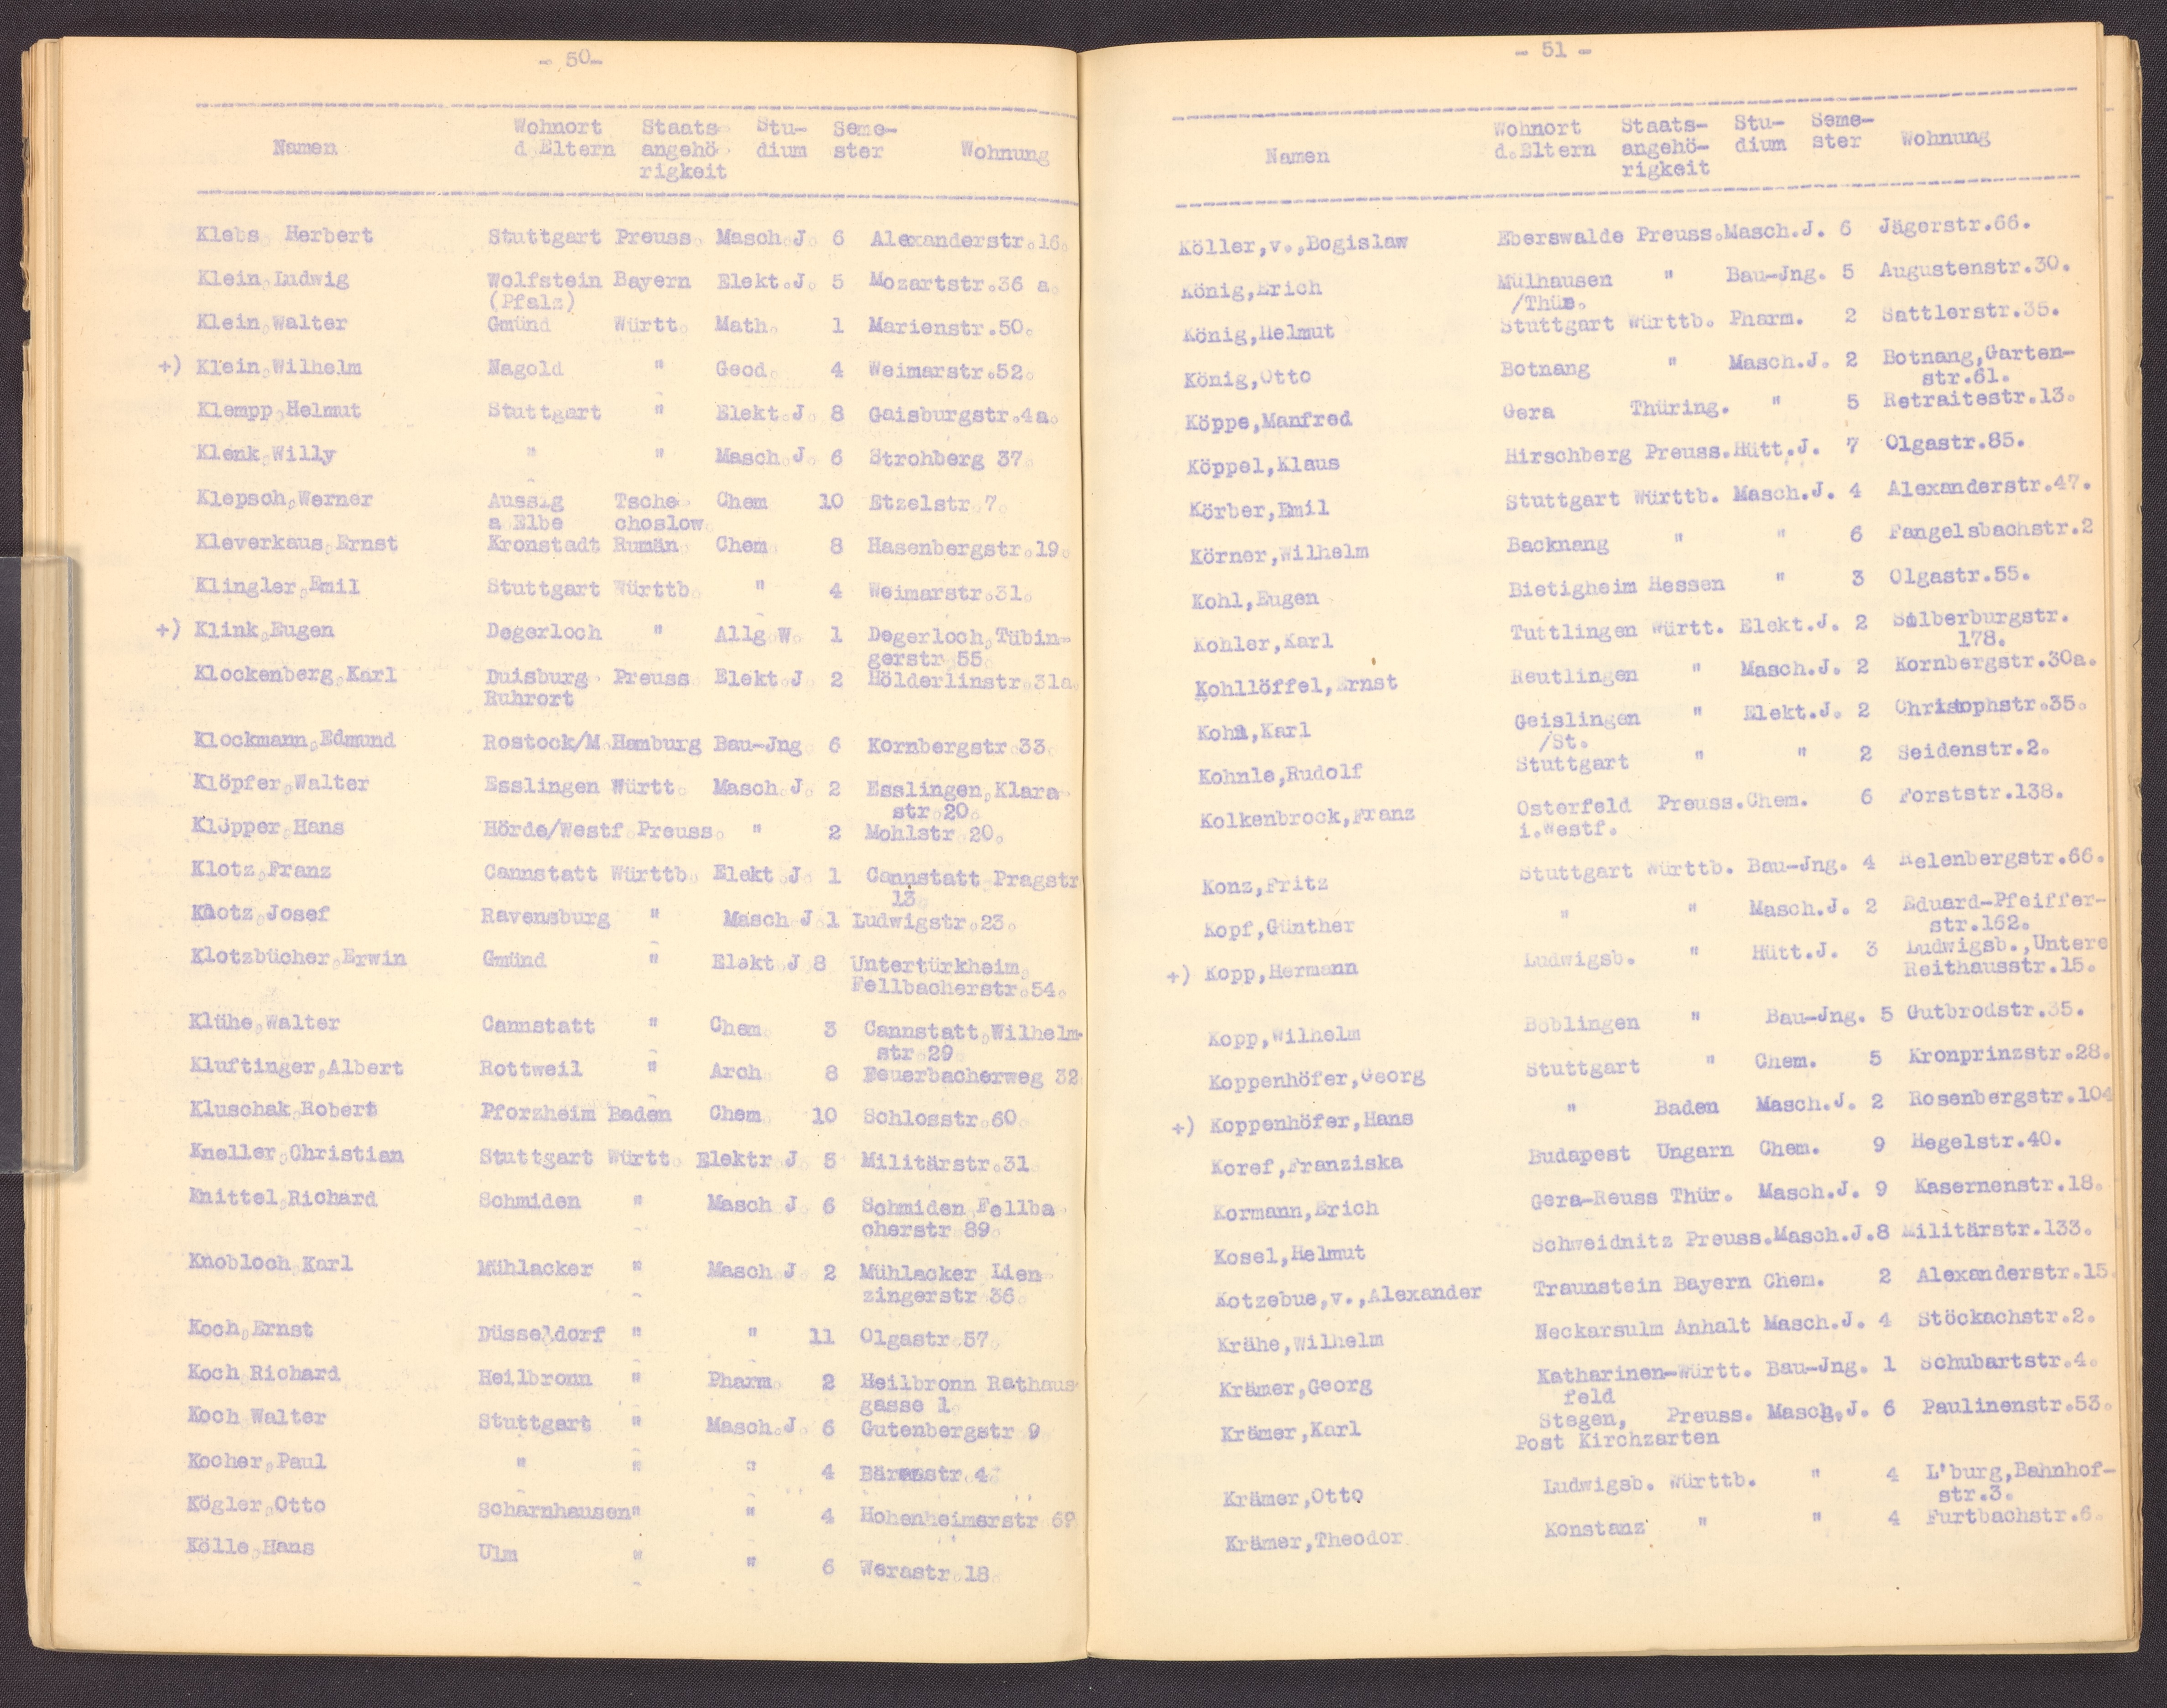 - 50 -
Namen Wohnort d. Eltern Staatsangehörigkeit Studium Semester Wohnung
Klebs, Herbert Stuttgart Preuss. Masch.J. 6 Alexanderstr.16.
Klein,Ludwig Wolfstein Bayern Elekt.J. 5 Mozartstr.36 a.
(Pfalz)
Klein,Walter Gmünd Württ. Math. 1 Marienstr.50.
+) Klein,Wilhelm Nagold " Geod. 4 Weimarstr.52.
Klempp,Helmut Stuttgart " Elekt.J. 8 Gaisburgstr.4a.
Klenk,Willy " " Masch.J. 6 Strohberg 37.
Klepsch,Werner Aussig Tsche- Chem 10 Etzelstr.7.
a Elbe choslow.
Kleverkaus,Ernst Kronstadt Rumän. Chem. 8 Hasenbergstr.19.
Klingler,Emil Stuttgart Württb. " 4 Weimarstr.31.
+) Klink,Eugen Degerloch " Allg.W. 1 Degerloch,Tübin-
gerstr.55.
Klockenberg,Karl Duisburg- Preuss. Elekt.J. 2 Hölderlinstr.31a.
Ruhrort
Klockmann,Edmund Rostock/M.Hamburg Bau-Jng. 6 Kornbergstr.33.
Klöpfer,Walter Esslingen Württ. Masch.J. 2 Esslingen,Klara-
str.20.
Klöpper,Hans Hörde/Westf.Preuss. " 2 Mohlstr.20.
Klotz,Franz Cannstatt Württb. Elekt.J. 1 Cannstatt,Pragstr.
13.
Klotz,Josef Ravensburg " Masch.J.1 Ludwigstr.23.
Klotzbücher,Erwin Gmünd " Elekt.J.8 Untertürkheim,
Fellbacherstr.54.
Klühe,Walter Cannstatt " Chem. 3 Cannstatt,Wilhelm-
str.29.
Kluftinger,Albert Rottweil " Arch. 8 Feuerbacherweg 32.
Kluschak,Robert Pforzheim Baden Chem. 10 Schlosstr.60.
Kneller,Christian Stuttgart Württ. Elektr.J. 5 Militärstr.31.
Knittel,Richard Schmiden " Masch.J. 6 Schmiden,Fellba-
cherstr.89.
Knobloch,Karl Mühlacker " Masch.J. 2 Mühlacker,Lien-
zingerstr.36.
Koch,Ernst Düsseldorf " " 11 Olgastr.57.
Koch,Richard Heilbronn " Pharm. 2 Heilbronn,Rathaus-
gasse 1.
Koch,Walter Stuttgart " Masch.J. 6 Gutenbergstr.9
Kocher,Paul " " " 4 Bärenstr.4.
Kögler,Otto Scharnhausen" " 4 Hohenheimerstr.69.
Kölle,Hans Ulm " " 6 Werastr.18.
- 51 -
Namen Wohnort d.Eltern Staats-angehö-rigkeit Stu-dium Seme-ster Wohnung
Köller,v.,Bogislaw Eberswalde Preuss.Masch.J. 6 Jägerstr.66.
König,Erich Mülhausen " Bau-Jng. 5 Augustenstr.30.
/Thür.
König,Helmut Stuttgart Württb. Pharm. 2 Sattlerstr.35.
König,Otto Botnang " Masch.J. 2 Botnang,Garten-
str.61.
Köppe,Manfred Gera Thüring. " 5 Retraitestr.13.
Köppel,Klaus Hirschberg Preuss.Hütt.J. 7 Olgastr.85.
Körber,Emil Stuttgart Württb. Masch.J. 4 Alexanderstr.47.
Körner,Wilhelm Backnang " " 6 Fangelsbachstr.2
Kohl,Eugen Bietigheim Hessen " 3 Olgastr.55.
Kohler,Karl Tuttlingen Württ. Elekt.J. 2 Silberburgstr.
178.
Kohllöffel,Ernst Reutlingen " Masch.J. 2 Kornbergstr.30a.
Kohn,Karl Geislingen " Elekt.J. 2 Christophstr.35.
/St.
Kohnle,Rudolf Stuttgart " " 2 Seidenstr.2.
Kolkenbrock,Franz Osterfeld Preuss.Chem. 6 Forststr.138.
i.Westf.
Konz,Fritz Stuttgart Württb. Bau-Jng. 4 Relenbergstr.66.
Kopf,Günther " " Masch.J. 2 Eduard-Pfeiffer-
str.162.
+) Kopp,Hermann Ludwigsb. " Hütt.J. 3 Ludwigsb.,Untere
Reithausstr.15.
Kopp,Wilhelm Böblingen " Bau-Jng. 5 Gutbrodstr.35.
Koppenhöfer,Georg Stuttgart " Chem. 5 Kronprinzstr.28.
+) Koppenhöfer,Hans " Baden Masch.J. 2 Rosenbergstr.104
Koref,Franziska Budapest Ungarn Chem. 9 Hegelstr.40.
Kormann,Erich Gera-Reuss Thür. Masch.J. 9 Kasernenstr.18.
Kosel,Helmut Schweidnitz Preuss.Masch.J.8 Militärstr.133.
Kotzebue,v.,Alexander Traunstein Bayern Chem. 2 Alexanderstr.15.
Krähe,Wilhelm Neckarsulm Anhalt Masch.J. 4 Stöckachstr.2.
Krämer,Georg Katharinen-Württ. Bau-Jng. 1 Schubartstr.4.
feld
Krämer,Karl Stegen, Preuss. Masch.J. 6 Paulinenstr.53.
Post Kirchzarten
Krämer,Otto Ludwigsb. Württb. " 4 L'burg,Bahnhof-
str.3.
Krämer,Theodor Konstanz " " 4 Furtbachstr.6.